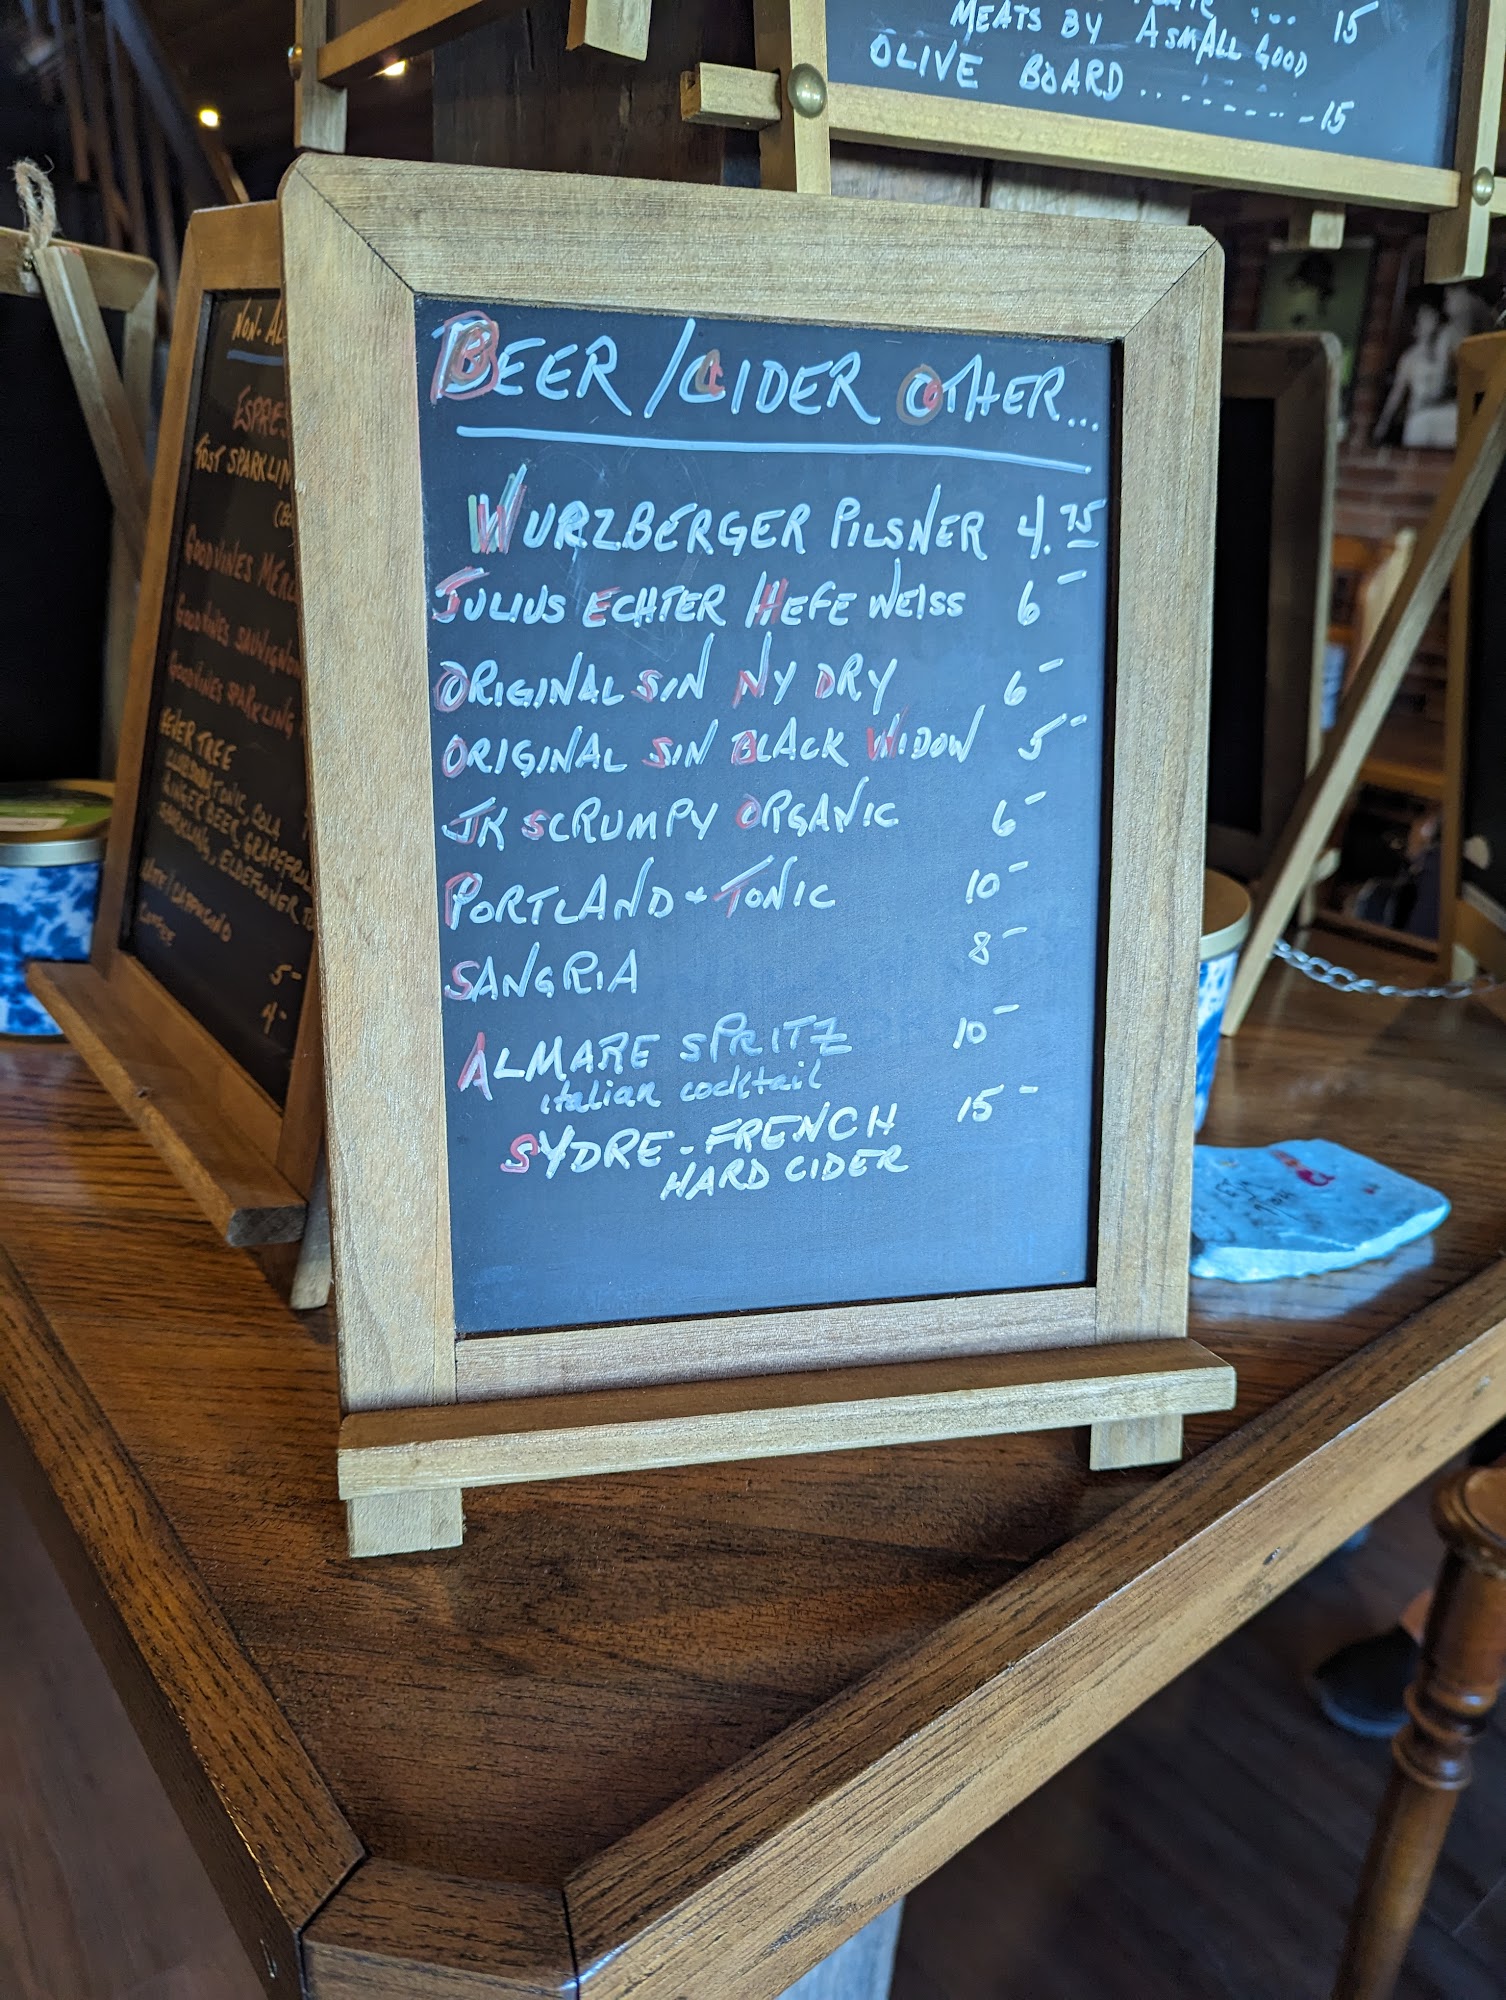 MEATS BY ASMALL GOOD 15
OLIVE BOARD ........-15
BEER/CIDER OTHER...
WURZBERGER PILSNER 4.75
JULIUS ECHTER HEFE WEISS 6-
ORIGINAL SIN NY DRY 6-
ORIGINAL SIN BLACK WIDOW 5-
JK SCRUMPY ORGANIC 6-
PORTLAND + TONIC 10-
SANGRIA 8-
ALMARE SPRITZ 10-
italian cocktail
SYDRE - FRENCH 15-
HARD CIDER
NON-AL
ESPRES
TOST SPARKLIN
GOODVINES MERL
GOODVINES SAUVIGNON
GOODVINES SPARKLING
FEVER TREE
TONIC, COLA
GINGER BEER, GRAPEFRUI
SPARKLING, ELDEFLOWER T
LATE/CAPPUCINO
COFFEE
5-
4-